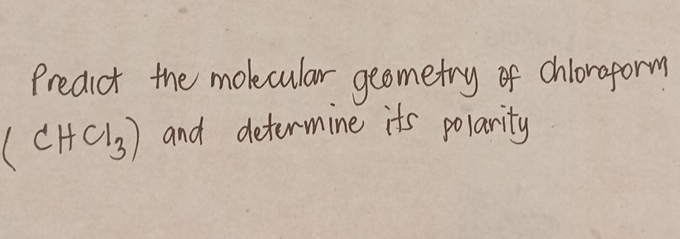 Predict the molecular geometry of chloroform
(CHCl₃) and determine its polarity